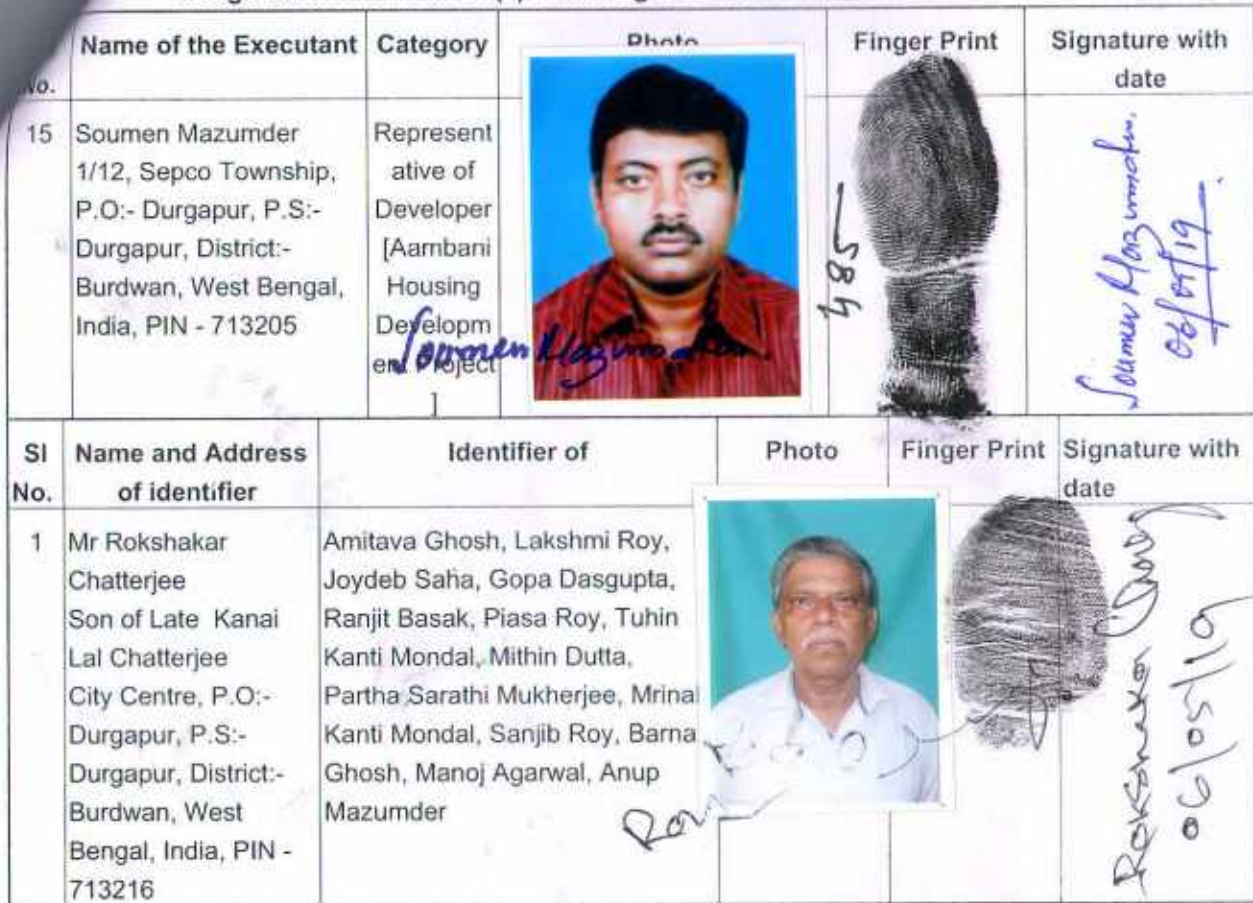 No.
Name of the Executant
Category
Photo
Finger Print
Signature with
date
15
Soumen Mazumder
1/12, Sepco Township,
P.O:- Durgapur, P.S:-
Durgapur, District:-
Burdwan, West Bengal,
India, PIN - 713205
Represent
ative of
Developer
[Aambani
Housing
Developm
ent Project
]
Soumen Mazumder.
485
Soumen Mazumder.
06/05/19.
Sl
No.
Name and Address
of identifier
Identifier of
Photo
Finger Print
Signature with
date
1
Mr Rokshakar
Chatterjee
Son of Late Kanai
Lal Chatterjee
City Centre, P.O:-
Durgapur, P.S:-
Durgapur, District:-
Burdwan, West
Bengal, India, PIN -
713216
Amitava Ghosh, Lakshmi Roy,
Joydeb Saha, Gopa Dasgupta,
Ranjit Basak, Piasa Roy, Tuhin
Kanti Mondal, Mithin Dutta,
Partha Sarathi Mukherjee, Mrinal
Kanti Mondal, Sanjib Roy, Barna
Ghosh, Manoj Agarwal, Anup
Mazumder
Rokshakar
06/05/19